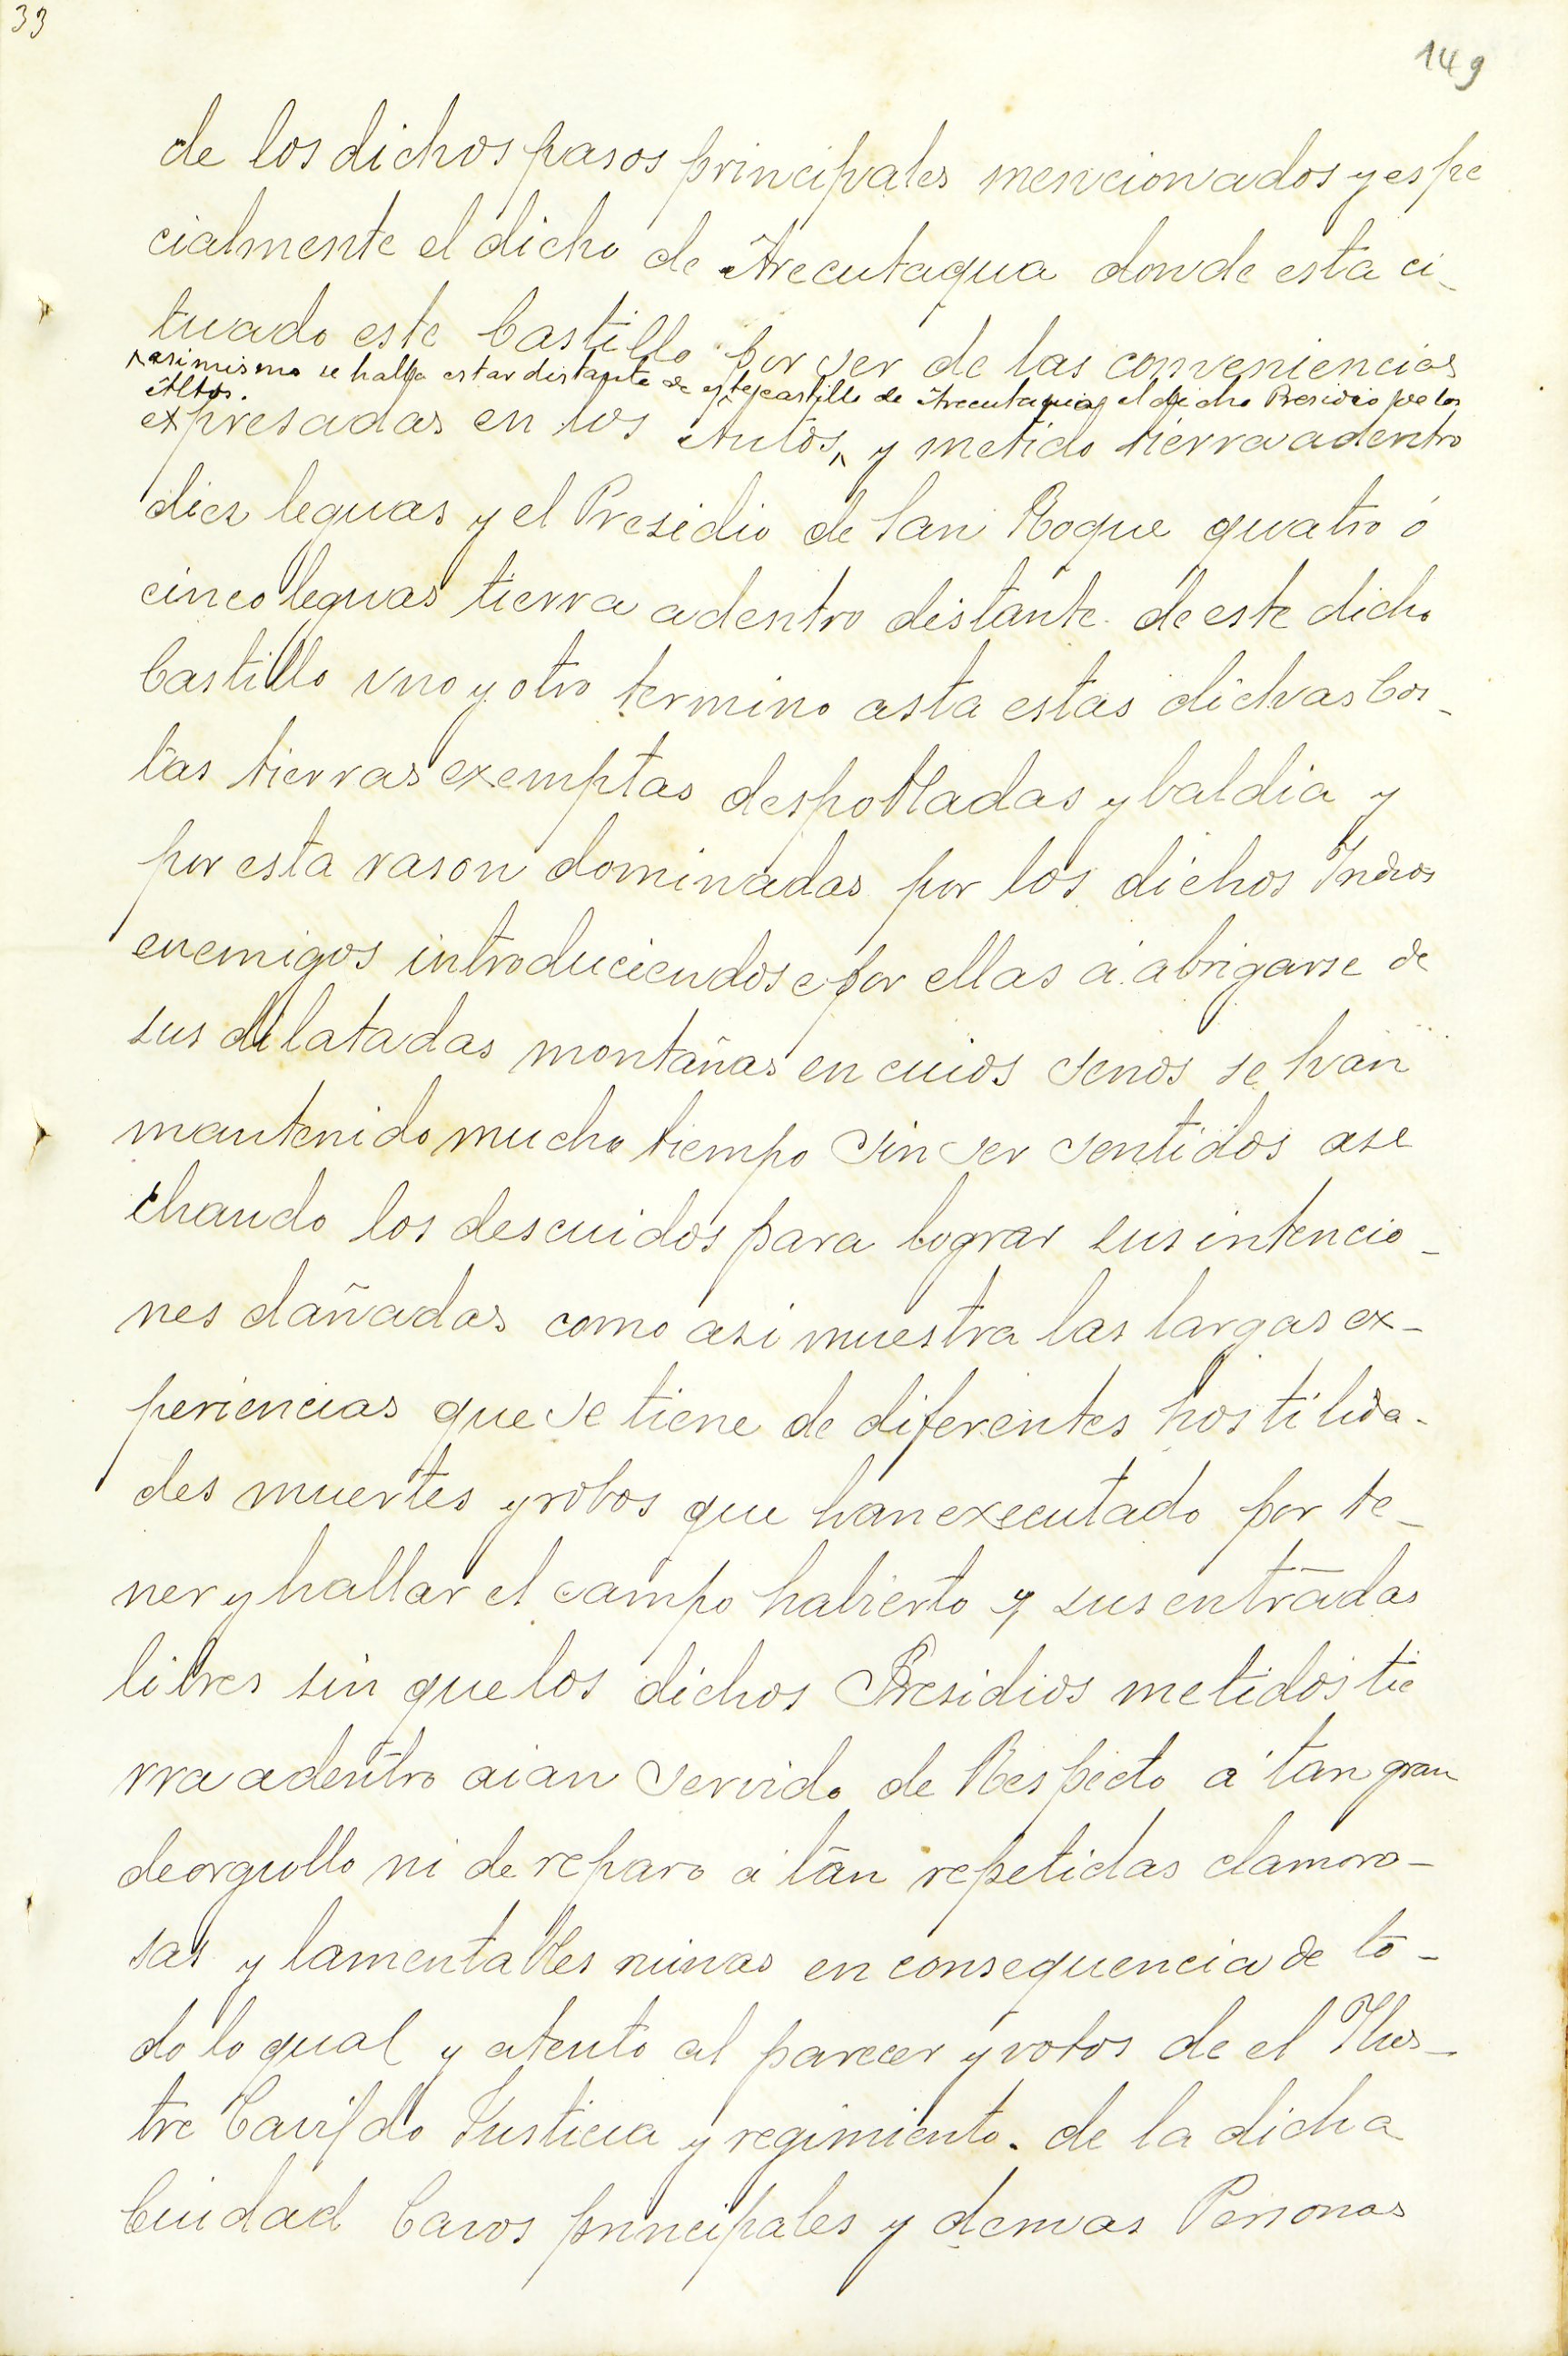 33
149
de los dichos pasos principales mencionados y espe
cialmente el dicho de Arecutaqua donde esta ci-
tuado este Castillo por ser de las conveniencias
asimismo se halla estar distante de este castillo de Arecutaqua el dicho Presidio de los
Altos.
expresadas en los Autos, y metido tierra adentro
diez leguas y el Presidio de San Roque quatro ó
cinco leguas tierra adentro distante de este dicho
Castillo vno y otro termino asta estas dichas Cos-
tas tierras exemptas despobladas y baldia y
por esta rason dominadas por los dichos Indios
enemigos introduciendose por ellas a abrigarse de
sus dilatadas montañas en cuios senos se han
mantenido mucho tiempo sin ser sentidos ase
chando los descuidos para lograr sus intencio-
nes dañadas como asi muestra las largas ex-
periencias que se tiene de diferentes hostilida-
des muertes y robos que han executado por te-
ner y hallar el campo habierto y sus entradas
libres sin que los dichos Presidios metidos tie
rra adentro aian servido de Respecto á tan gran
de orgullo ni de reparo a tan repetidas clamoro-
sas y lamentables ruinas en consequencia de to-
do lo qual y atento al parecer y votos de el Ilus-
tre Cavildo Justicia y regimiento. de la dicha
Ciudad Cavos principales y demas Personas